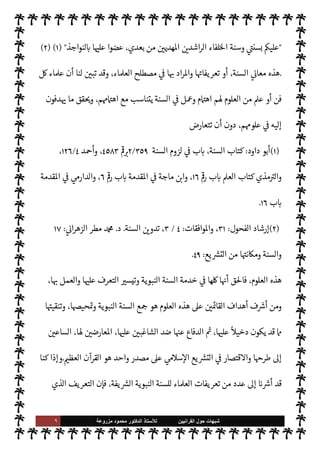 "عليكم بسنتي وسنة الخلفاء الراشدين المهديين من بعدي، عضوا عليها بالنواجذ" (١) (٢)
.هذه معاني السنة، أو تعريفاتها والمراد بها في مصطلح العلماء، وقد تبين لنا أن علماء كل
فن أو علم من العلوم لهم اهتمام وعمل في السنة يتناسب مع اهتمامهم، ويحقق ما يهدفون
إليه في علومهم، دون أن تتعارض
(١)أبو داود: كتاب السنة، باب في لزوم السنة ٢/٣٥٩رقم ٤٥٨٣، وأحمد ١٢٦/٤،
والترمذي كتاب العلم باب رقم ١٦، وابن ماجة في المقدمة باب رقم ٦، والدارمي في المقدمة
باب ١٦.
(٢)إرشاد الفحول: ٣١، والموافقات: ٤ / ٣، تدوين السنة. د. محمد مطر الزهراني: ١٧
والسنة ومكانتها من التشريع: ٤٩.
هذه العلوم، فالحق أنها كلها في خدمة السنة النبوية وتيسير التعرف عليها والعمل بها،
ومن أشرف أهداف القائمين على هذه العلوم هو جمع السنة النبوية وتمحيصها، وتنقيتها
مما قد يكون دخيلاً عليها، ثم الدفاع عنها ضد الشاغبين عليها، المعارضين لها، الساعين
إلى طرحها والاقتصار في التشريع الإسلامي على مصدر واحد هو القرآن العظيم.وإذا كنا
قد أشرنا إلى عدد من تعريفات العلماء للسنة النبوية الشريفة، فإن التعريف الذي
شبهات حول القرآنيين للأستاذ الدكتور محمود مزروعة ٩